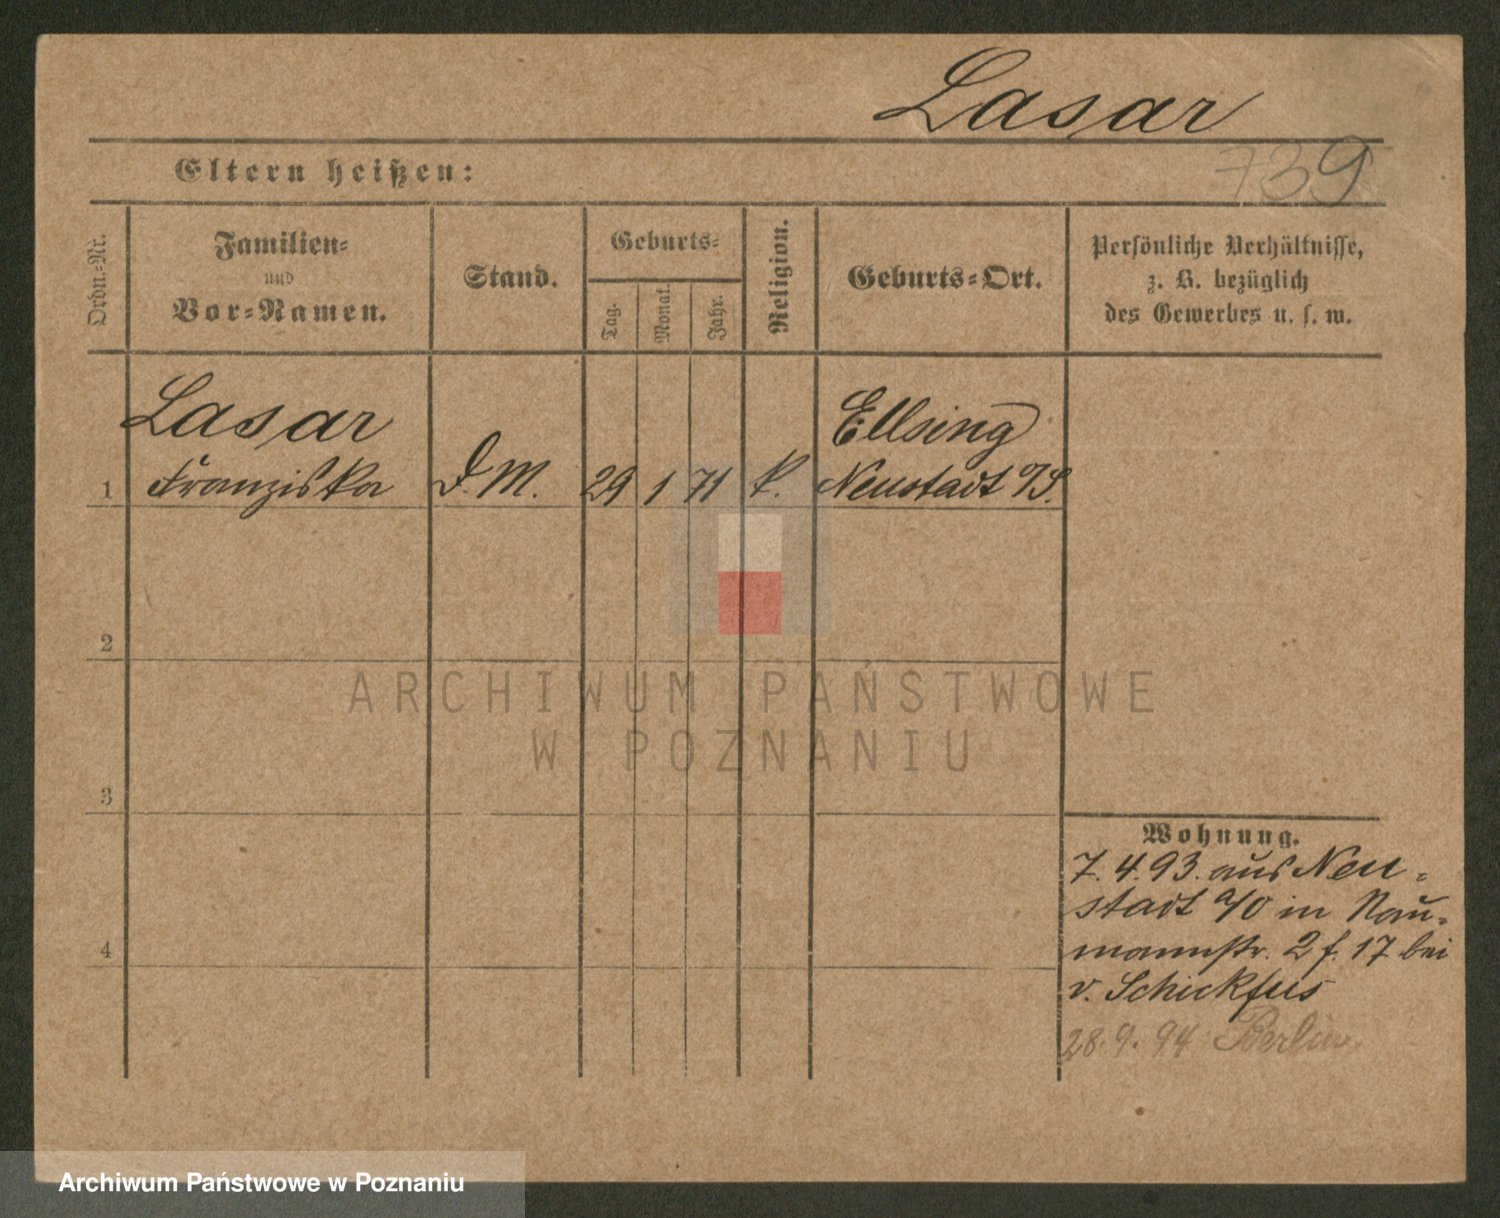 Lasar
739
Eltern heißen:
Ordn.-Nr.
Familien-
und
Vor-Namen.
Stand.
Geburts-
Tag.
Monat.
Jahr.
Religion.
Geburts-Ort.
Persönliche Verhältnisse,
z. B. bezüglich
des Gewerbes u. s. w.
Lasar
Franziska
1
D. M.
29
1
71
k.
Ellsing
Neustadt O/S.
2
3
4
Wohnung.
7. 4. 93. aus Neu-
stadt a/O in Nau-
mannstr. 2 f. 17 bei
v. Schickfus
28. 9. 94 Berlin
ARCHIWUM PAŃSTWOWE
W POZNANIU
Archiwum Państwowe w Poznaniu